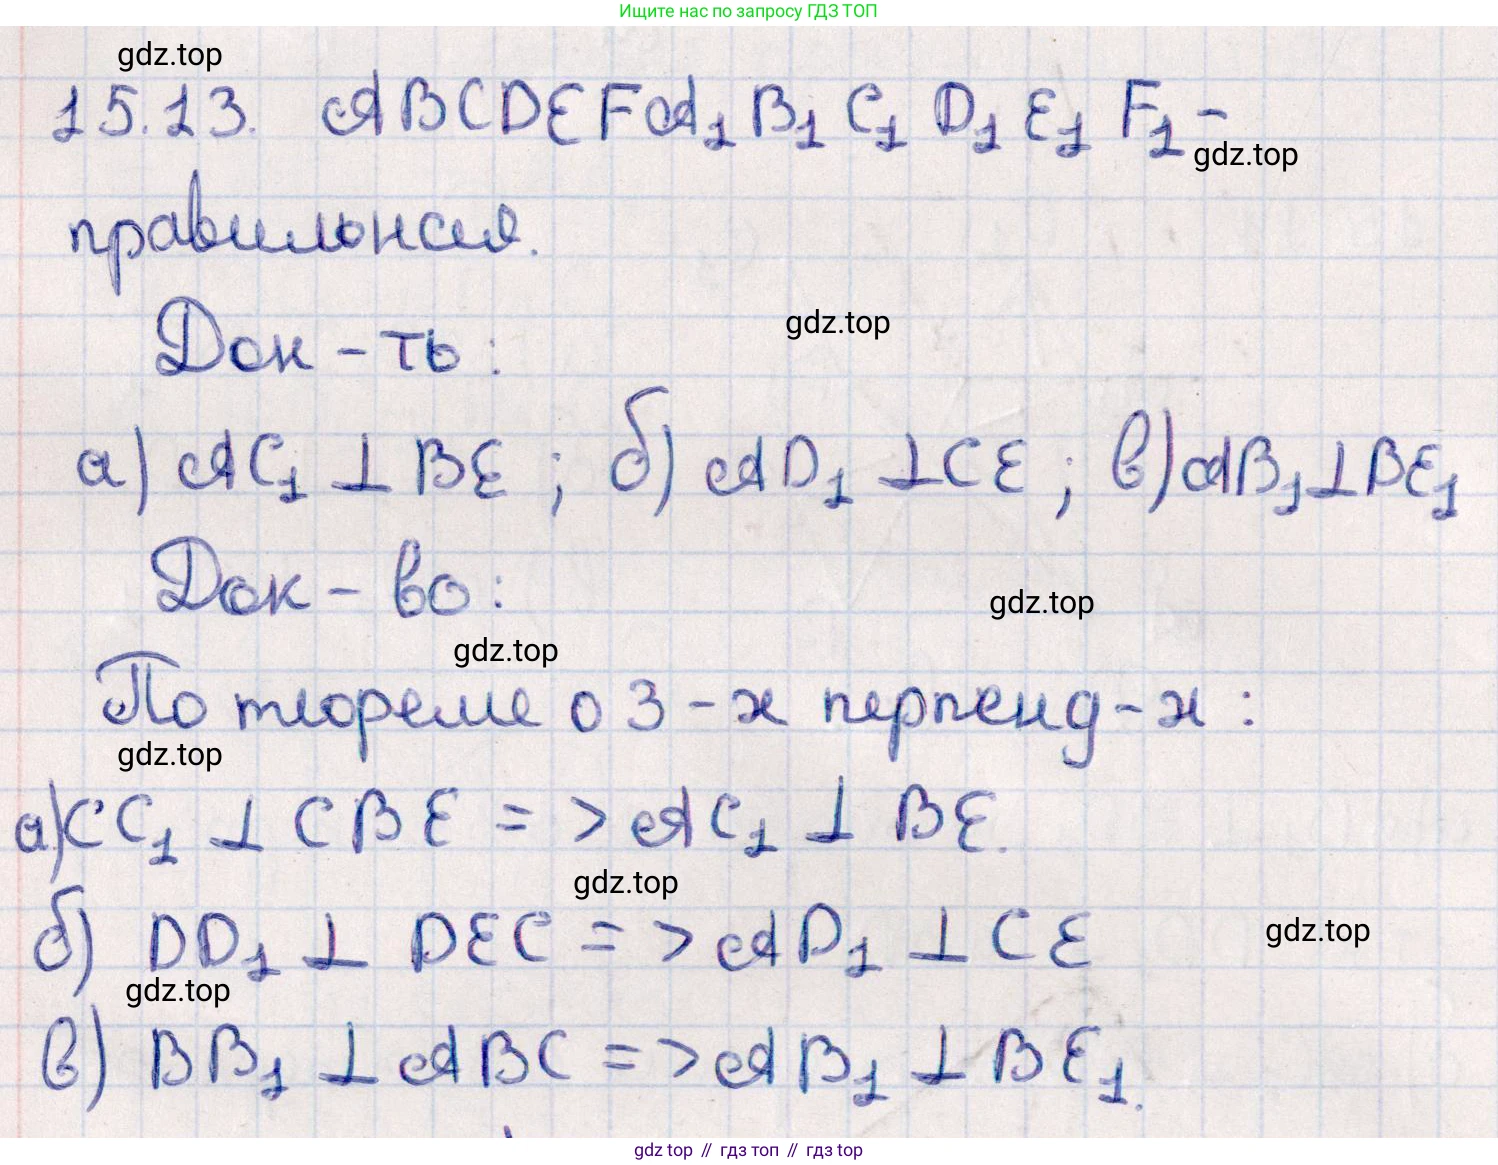 Ищите нас по запросу ГДЗ ТОП
gdz.top
15.13. ABCDEFA₁B₁C₁D₁E₁F₁ –
gdz.top
правильная.
Док – ть:
gdz.top
а) AC₁ ⊥ BE ; б) AD₁ ⊥ CE ; в) AB₁ ⊥ BE₁
Док – во:
gdz.top
gdz.top
По теореме о 3 – х перпенд – х :
gdz.top
а) CC₁ ⊥ CBE => AC₁ ⊥ BE.
gdz.top
б) DD₁ ⊥ DEC => AD₁ ⊥ CE
gdz.top
gdz.top
в) BB₁ ⊥ ABC => AB₁ ⊥ BE₁.
gdz top // гдз топ // гдз top